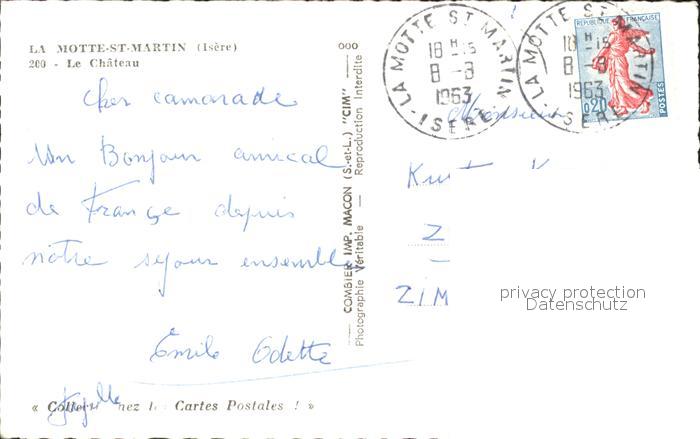 LA MOTTE-ST-MARTIN (Isère)
200 - Le Château
000
Cher camarade
Un Bonjour amical
de France depuis
notre sejour ensemble
Emile Odette
« Collectionnez les Cartes Postales ! »
COMBIER IMP. MACON (S.-et-L.) "CIM"
Photographie Véritable — Reproduction Interdite
LA MOTTE ST MARTIN
18 H 15
8 -8
1963
ISERE
LA MOTTE ST MARTIN
18 H 15
8 -8
1963
ISERE
REPUBLIQUE FRANÇAISE
0,20
POSTES
Monsieur
Z
ZIM
privacy protection
Datenschutz